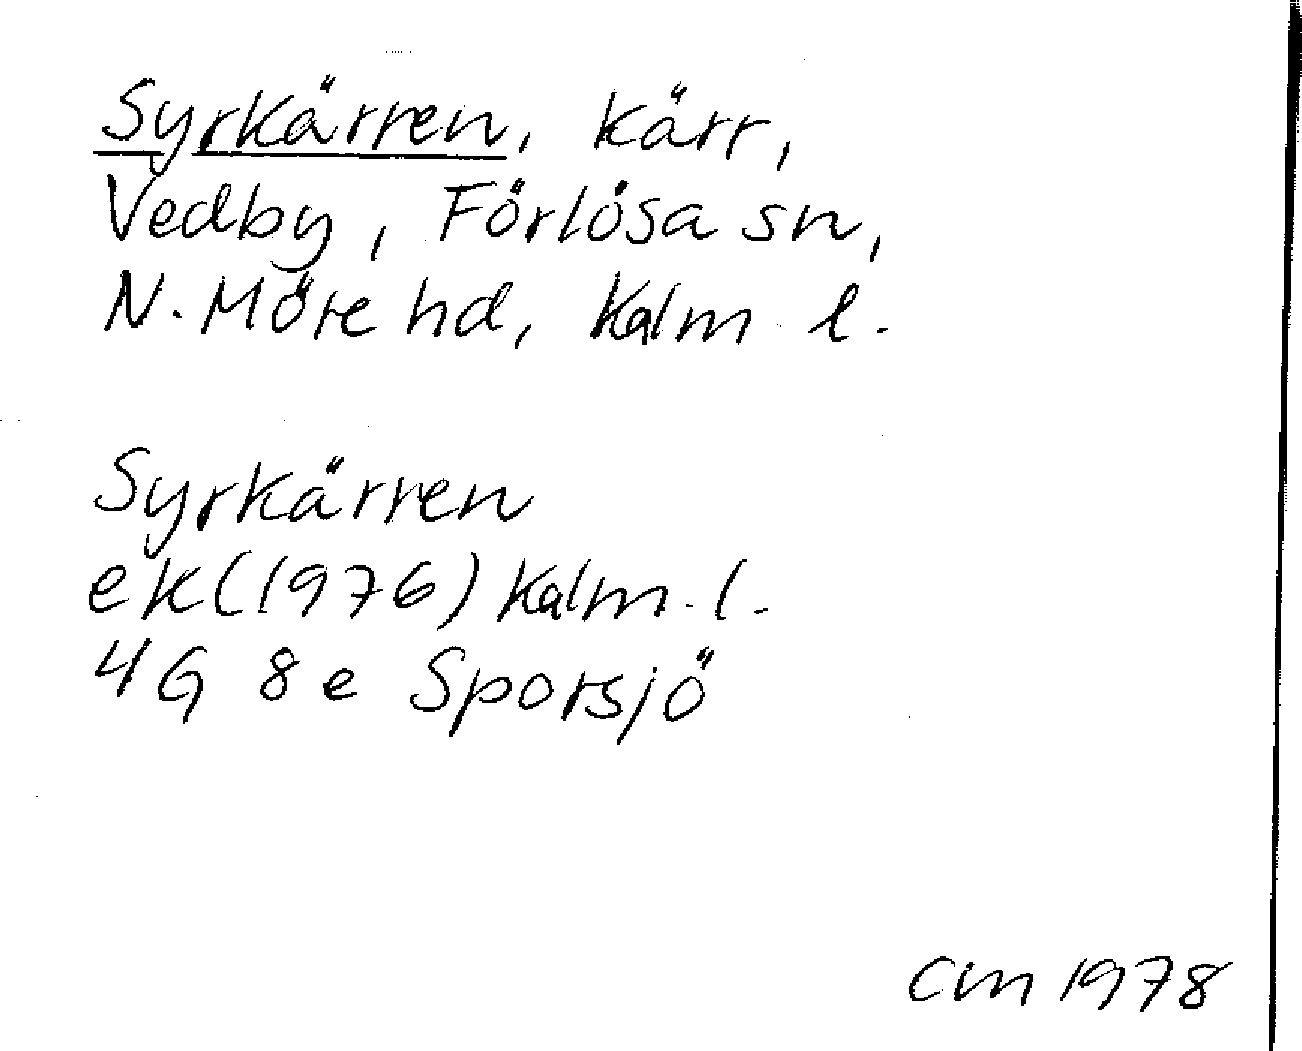 Syrkärren, kärr,
Vedby, Förlösa sn,
N. Möre hd, Kalm l.
Syrkärren
ek(1976) Kalm. l.
4G 8e Sporsjö
CM 1978